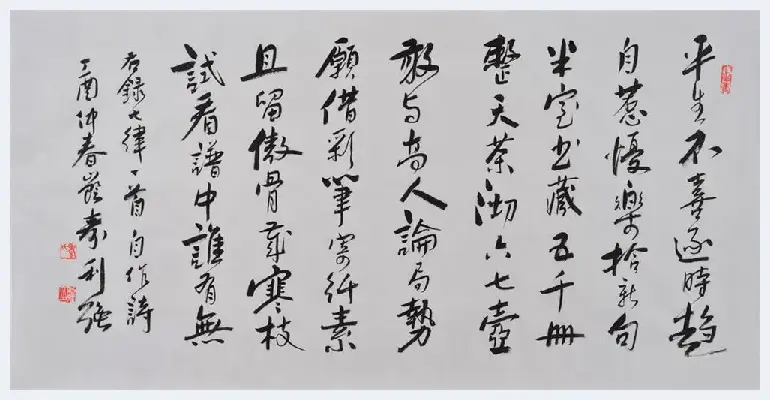 平生不喜逐時趨
自惹懮樂拾新句
半室书藏五千冊
整天茶沏六七壺
敢与高人論局勢
願借彩筆寄紙素
且留傲骨戴寒枝
試看譜中誰有無
右錄七律一首自作詩
丁酉仲春秦利强